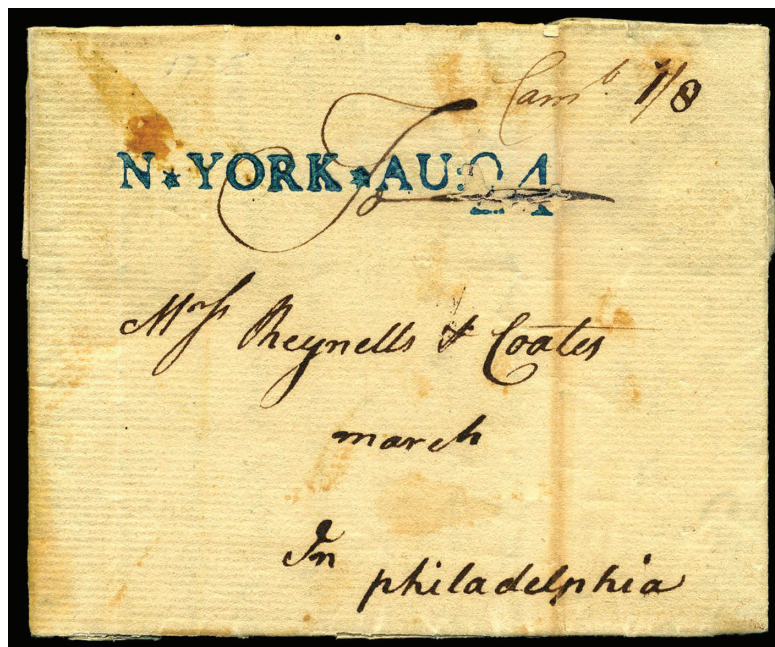 Camb 1/8
N★YORK★AU:24
To
Mrss Reynells & Coates
march
In
philadelphia